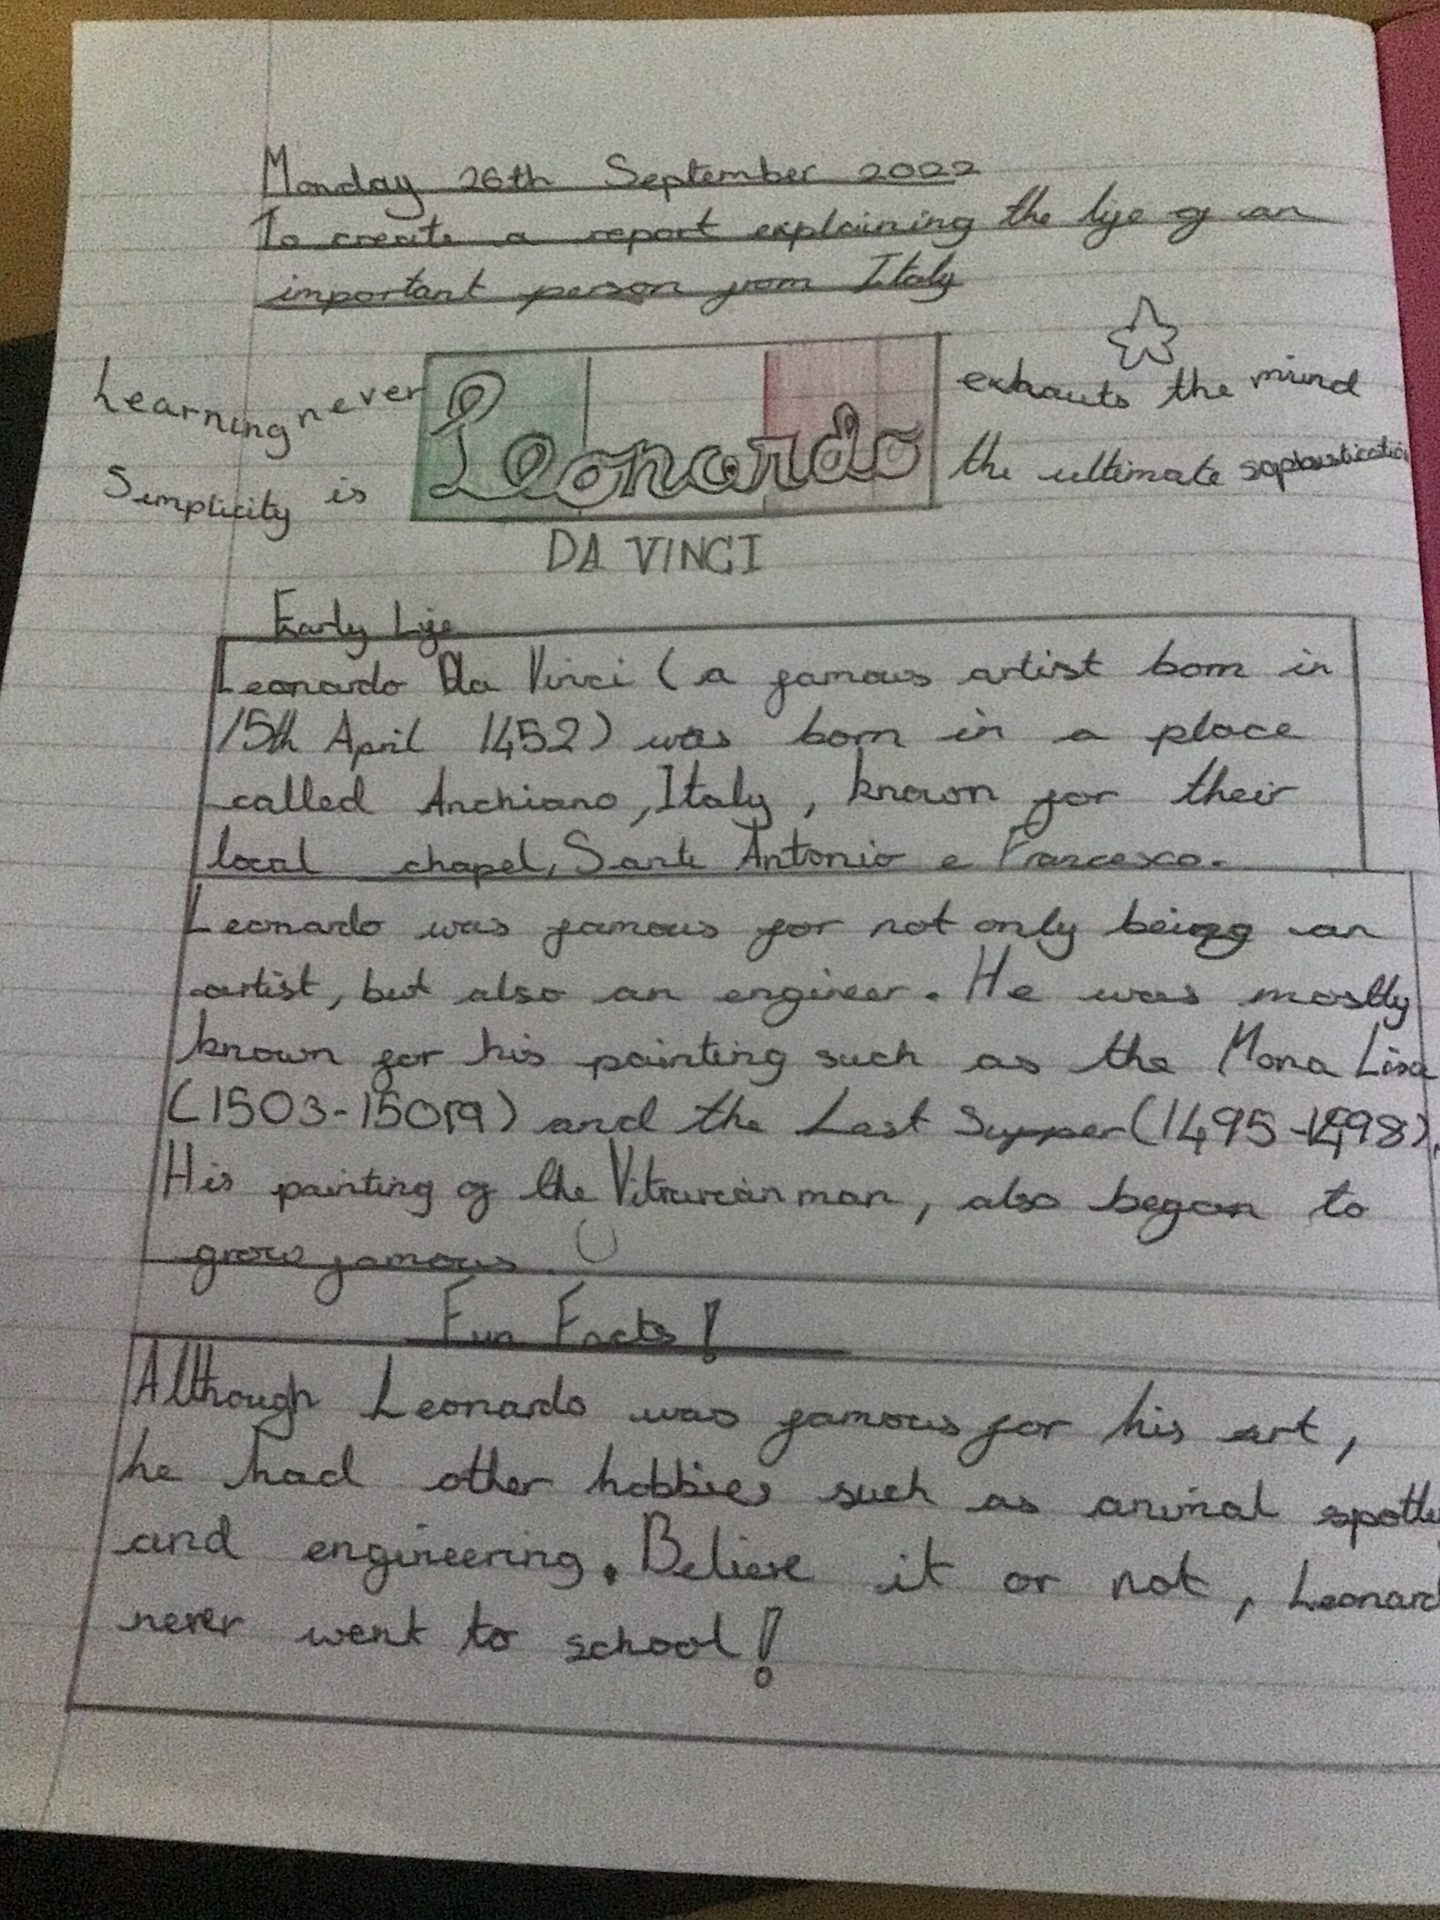 Monday 26th September 2022
To create a report explaining the life of an
important person from Italy
Learning never Leonardo exhauts the mind
Simplicity is the ultimate sophistication
DA VINCI
Early Life
Leonardo Da Vinci (a famous artist born in
15th April 1452) was born in a place
called Anchiano, Italy, known for their
local chapel, Sant Antonio e Francesco.
Leonardo was famous for not only being an
artist, but also an engineer. He was mostly
known for his painting such as the Mona Lisa
(1503-1519) and the Last Supper (1495-1498).
His painting of the Vitruvian man, also began to
grow famous.
Fun Facts!
Although Leonardo was famous for his art,
he had other hobbies such as animal
and engineering. Believe it or not, Leonard
never went to school!